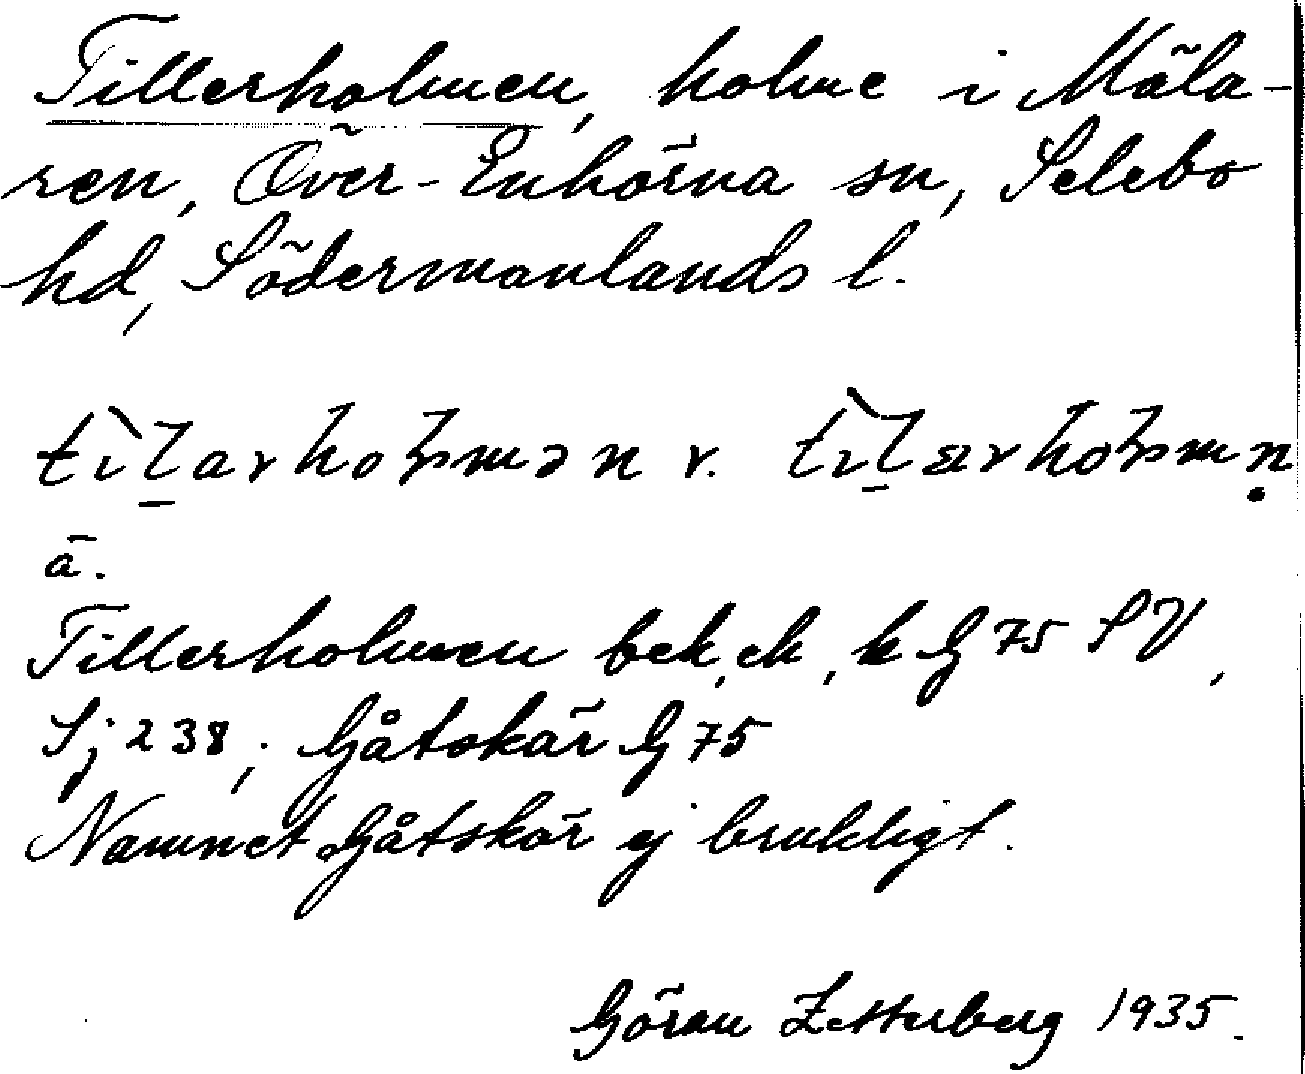 Tillerholmen, holme i Mäla-
ren, Över-Enhörna sn, Selebo
hd, Södermanlands l.
ä.
Tillerholmen bek, ek, k G 75 SV,
Sj 238; Gåtskär G 75
Namnet Gåtskär ej brukligt.
Göran Zetterberg 1935.